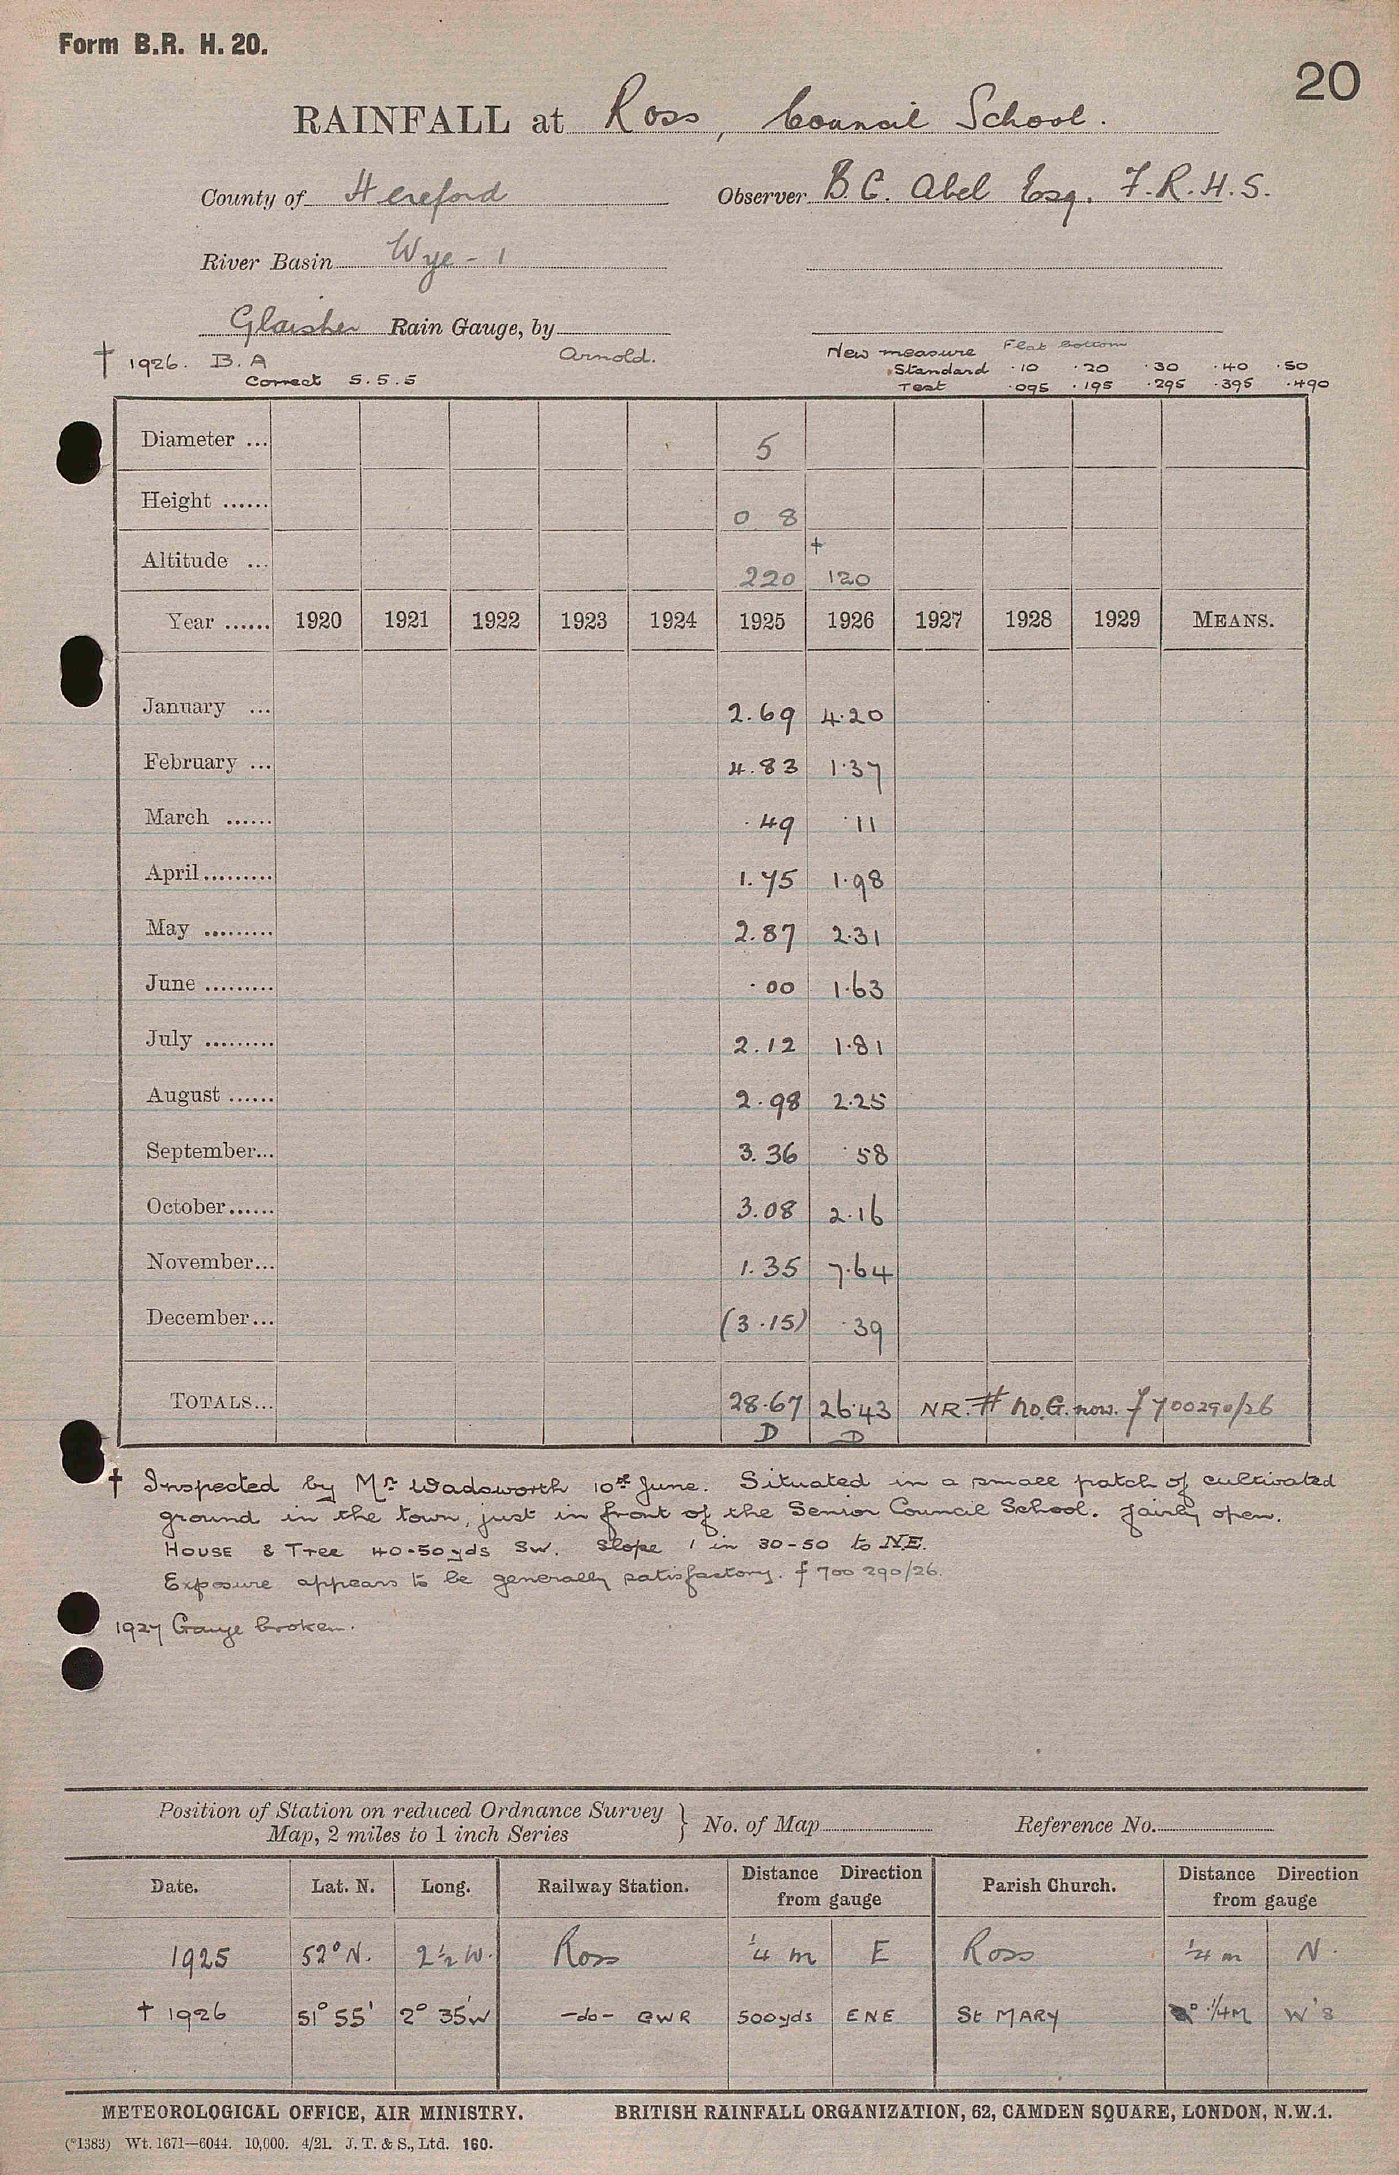 Form B.R. H. 20.
20
RAINFALL at Ross, Council School.
County of Hereford Observer B.C. Abel Esq. F.R.H.S.
River Basin Wye - 1
Glaisher Rain Gauge, by
† 1926. B. A Arnold. New measure Flat bottom
Correct 5.5.5 Standard .10 .20 .30 .40 .50
Test .095 .195 .295 .395 .490
Diameter ... 5
Height ...... 0 8
†
Altitude ... 220 120
Year ...... 1920 1921 1922 1923 1924 1925 1926 1927 1928 1929 MEANS.
January ... 2.69 4.20
February ... 4.83 1.37
March ...... .49 .11
April ......... 1.75 1.98
May ......... 2.87 2.31
June ......... .00 1.63
July ......... 2.12 1.81
August ...... 2.98 2.25
September... 3.36 .58
October...... 3.08 2.16
November... 1.35 7.64
December... (3.15) .39
TOTALS... 28.67 26.43 NR. # No.G. now. f 700290/26
D D
† Inspected by Mr. Wadsworth 10th June. Situated in a small patch of cultivated
ground in the town, just in front of the Senior Council School. fairly open.
HOUSE & Tree 40-50 yds SW. Slope 1 in 30-50 to NE.
Exposure appears to be generally satisfactory. f 700 290/26.
1927 Gauge broken.
Position of Station on reduced Ordnance Survey } No. of Map Reference No.
Map, 2 miles to 1 inch Series
Date. Lat. N. Long. Railway Station. Distance Direction from gauge Parish Church. Distance Direction from gauge
1925 52° N. 2½ W. Ross ¼ m E Ross ¼ m N.
† 1926 51° 55' 2° 35'W -do- GWR 500yds ENE St MARY ¼M W'S
METEOROLOGICAL OFFICE, AIR MINISTRY. BRITISH RAINFALL ORGANIZATION, 62, CAMDEN SQUARE, LONDON, N.W.1.
(*1383) Wt. 1671—6044. 10,000. 4/21. J. T. & S., Ltd. 160.